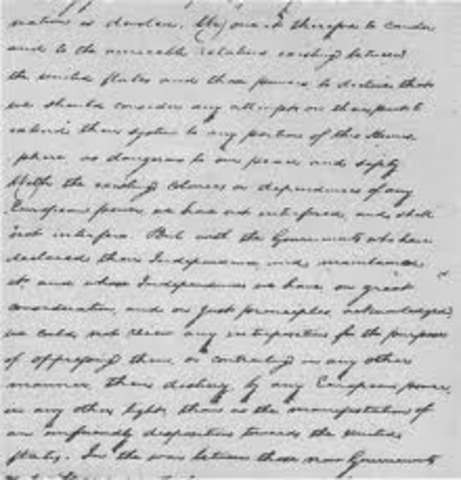 nation is devoted. We owe it therefore to candor
and to the amicable relations existing between
the United States and those powers to declare that
we should consider any attempt on their part to
extend their system to any portion of this Hemis-
phere as dangerous to our peace and safety.
With the existing Colonies or dependencies of any
European power, we have not interfered, and shall
not interfere. But with the Governments who have
declared their Independence, and maintained
it, and whose Independence we have, on great
consideration, and on just principles, acknowledged,
we could not view any interposition for the purpose
of oppressing them, or controlling in any other
manner, their destiny, by any European power,
in any other light, than as the manifestation of
an unfriendly disposition towards the United
States. In the war between those new Governments